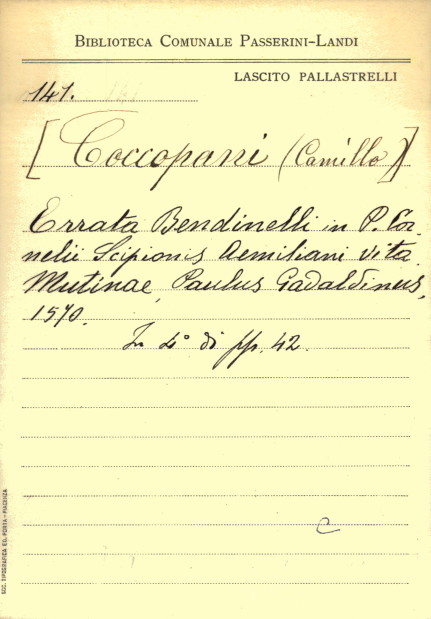 BIBLIOTECA COMUNALE PASSERINI-LANDI
LASCITO PALLASTRELLI
141.
[Coccopani (Camillo)]
Errata Bendinelli in P. Cor-
nelii Scipionis Aemiliani vita.
Mutinae, Paulus Gadaldinus,
1570.
In 4° di pp. 42.
C
SOC. TIPOGRAFICA ED. PORTA - PIACENZA